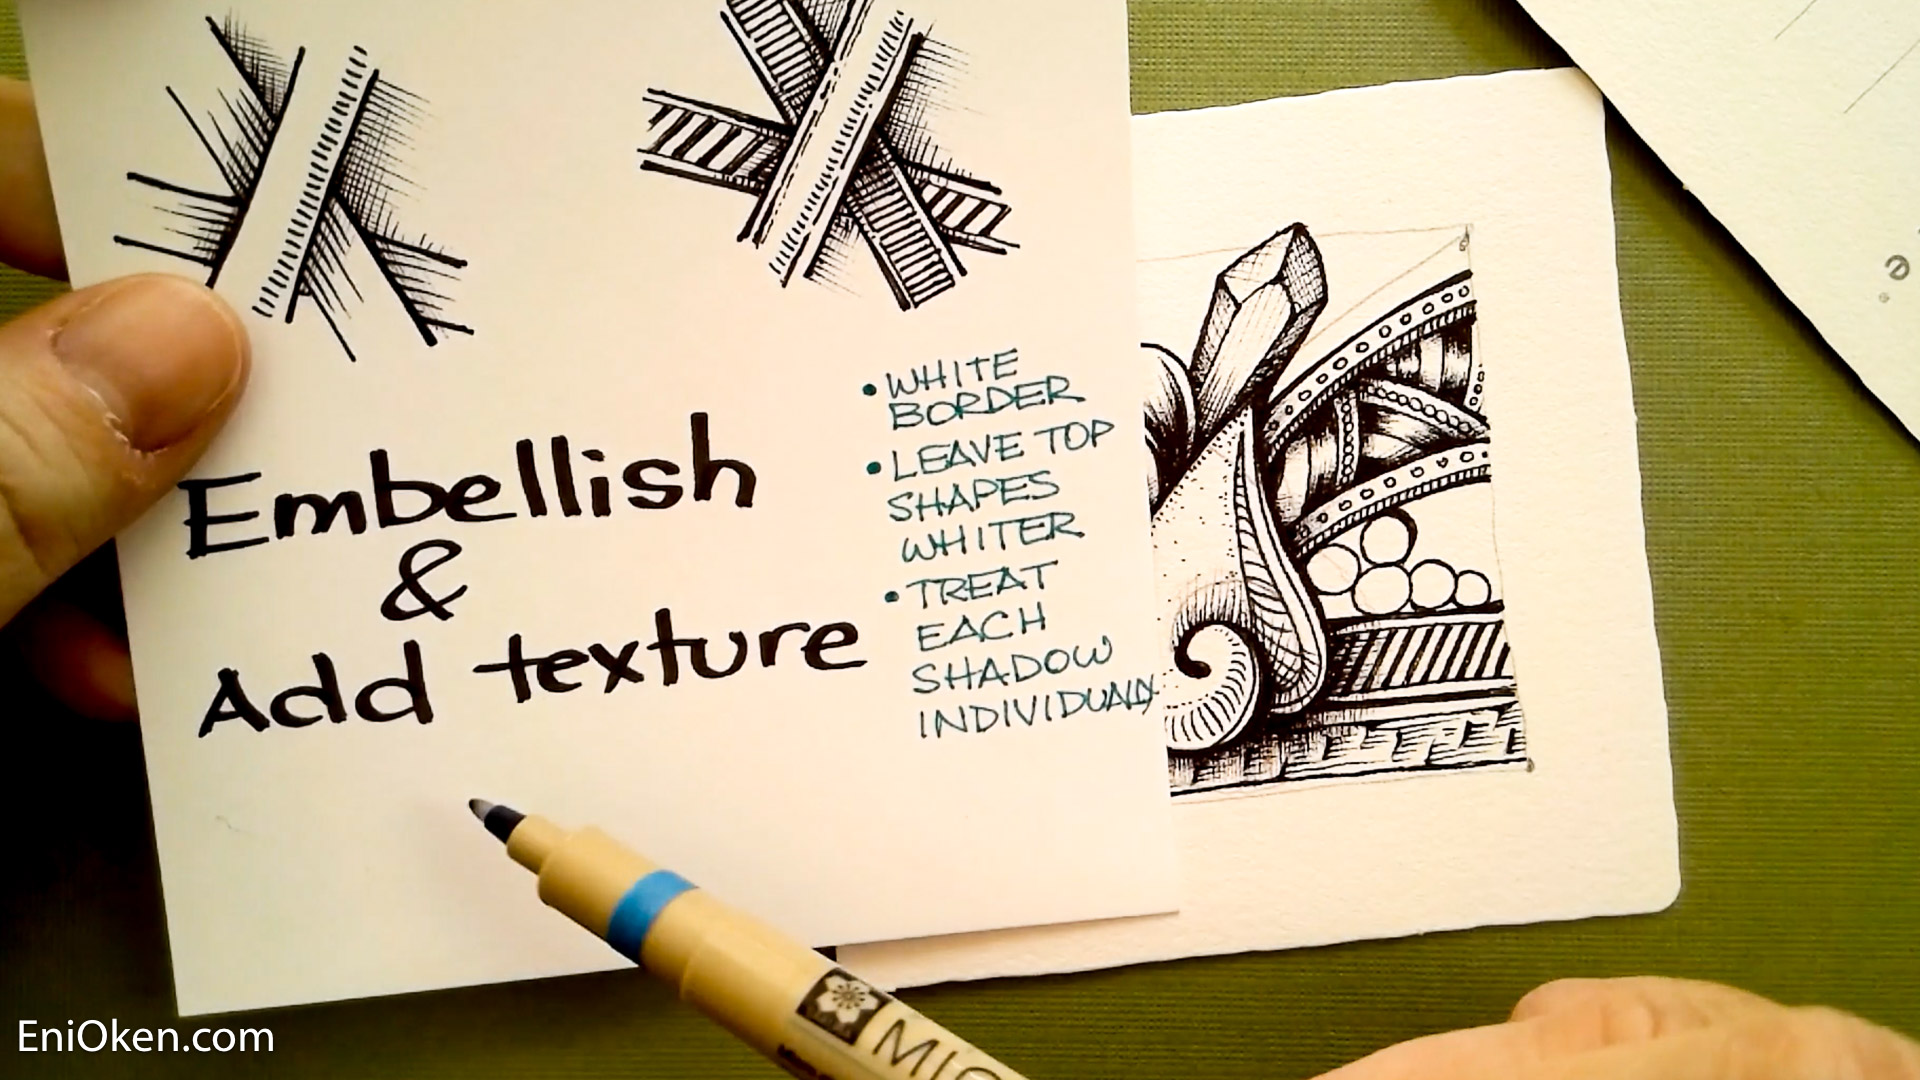 Embellish
&
Add texture
• WHITE
BORDER
• LEAVE TOP
SHAPES
WHITER
• TREAT
EACH
SHADOW
INDIVIDUALLY
e.
MIC
EniOken.com